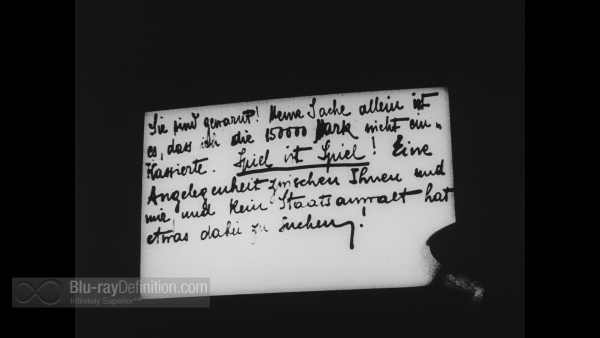 Sie sind gewarnt! Meine Sache allein ist
es, dass ich die 150000 Mark nicht ein„
kassierte. Spiel ist Spiel! Eine
Angelegenheit zwischen Ihnen und
mir, und kein Staatsanwalt hat
etwas dabei zu suchen!
Blu-rayDefinition.com
Infinitely Superior™